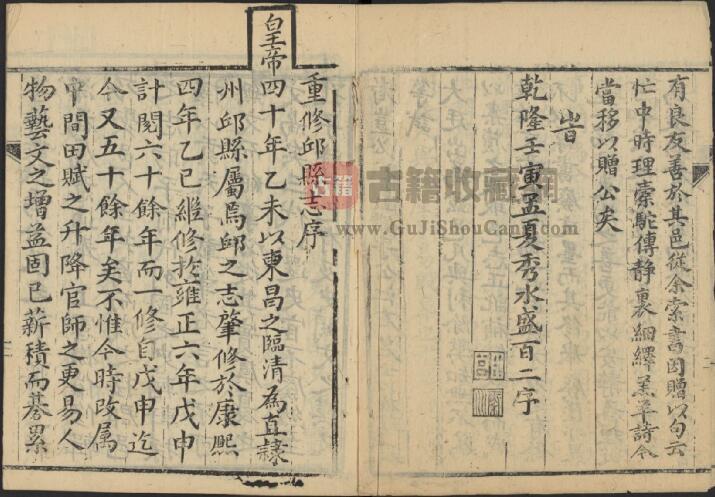 有良友善於其邑從余索書因贈以句云
忙中時理橐駝傳靜裏細繹羔羊詩今
當移以贈公矣
旹
乾隆壬寅孟夏秀水盛百二字
重修邱縣志序
皇帝四十年乙未以東昌之臨清為直隸
州邱縣屬焉邱之志肇修於康熙
四年乙巳繼修於雍正六年戊申
計閱六十餘年而一修自戊申迄
今又五十餘年矣不惟今時改属
中間田賦之升降官師之更易人
物藝文之增益固已薪積而棊累
古籍
古籍收藏网
www.GuJiShouCang.com